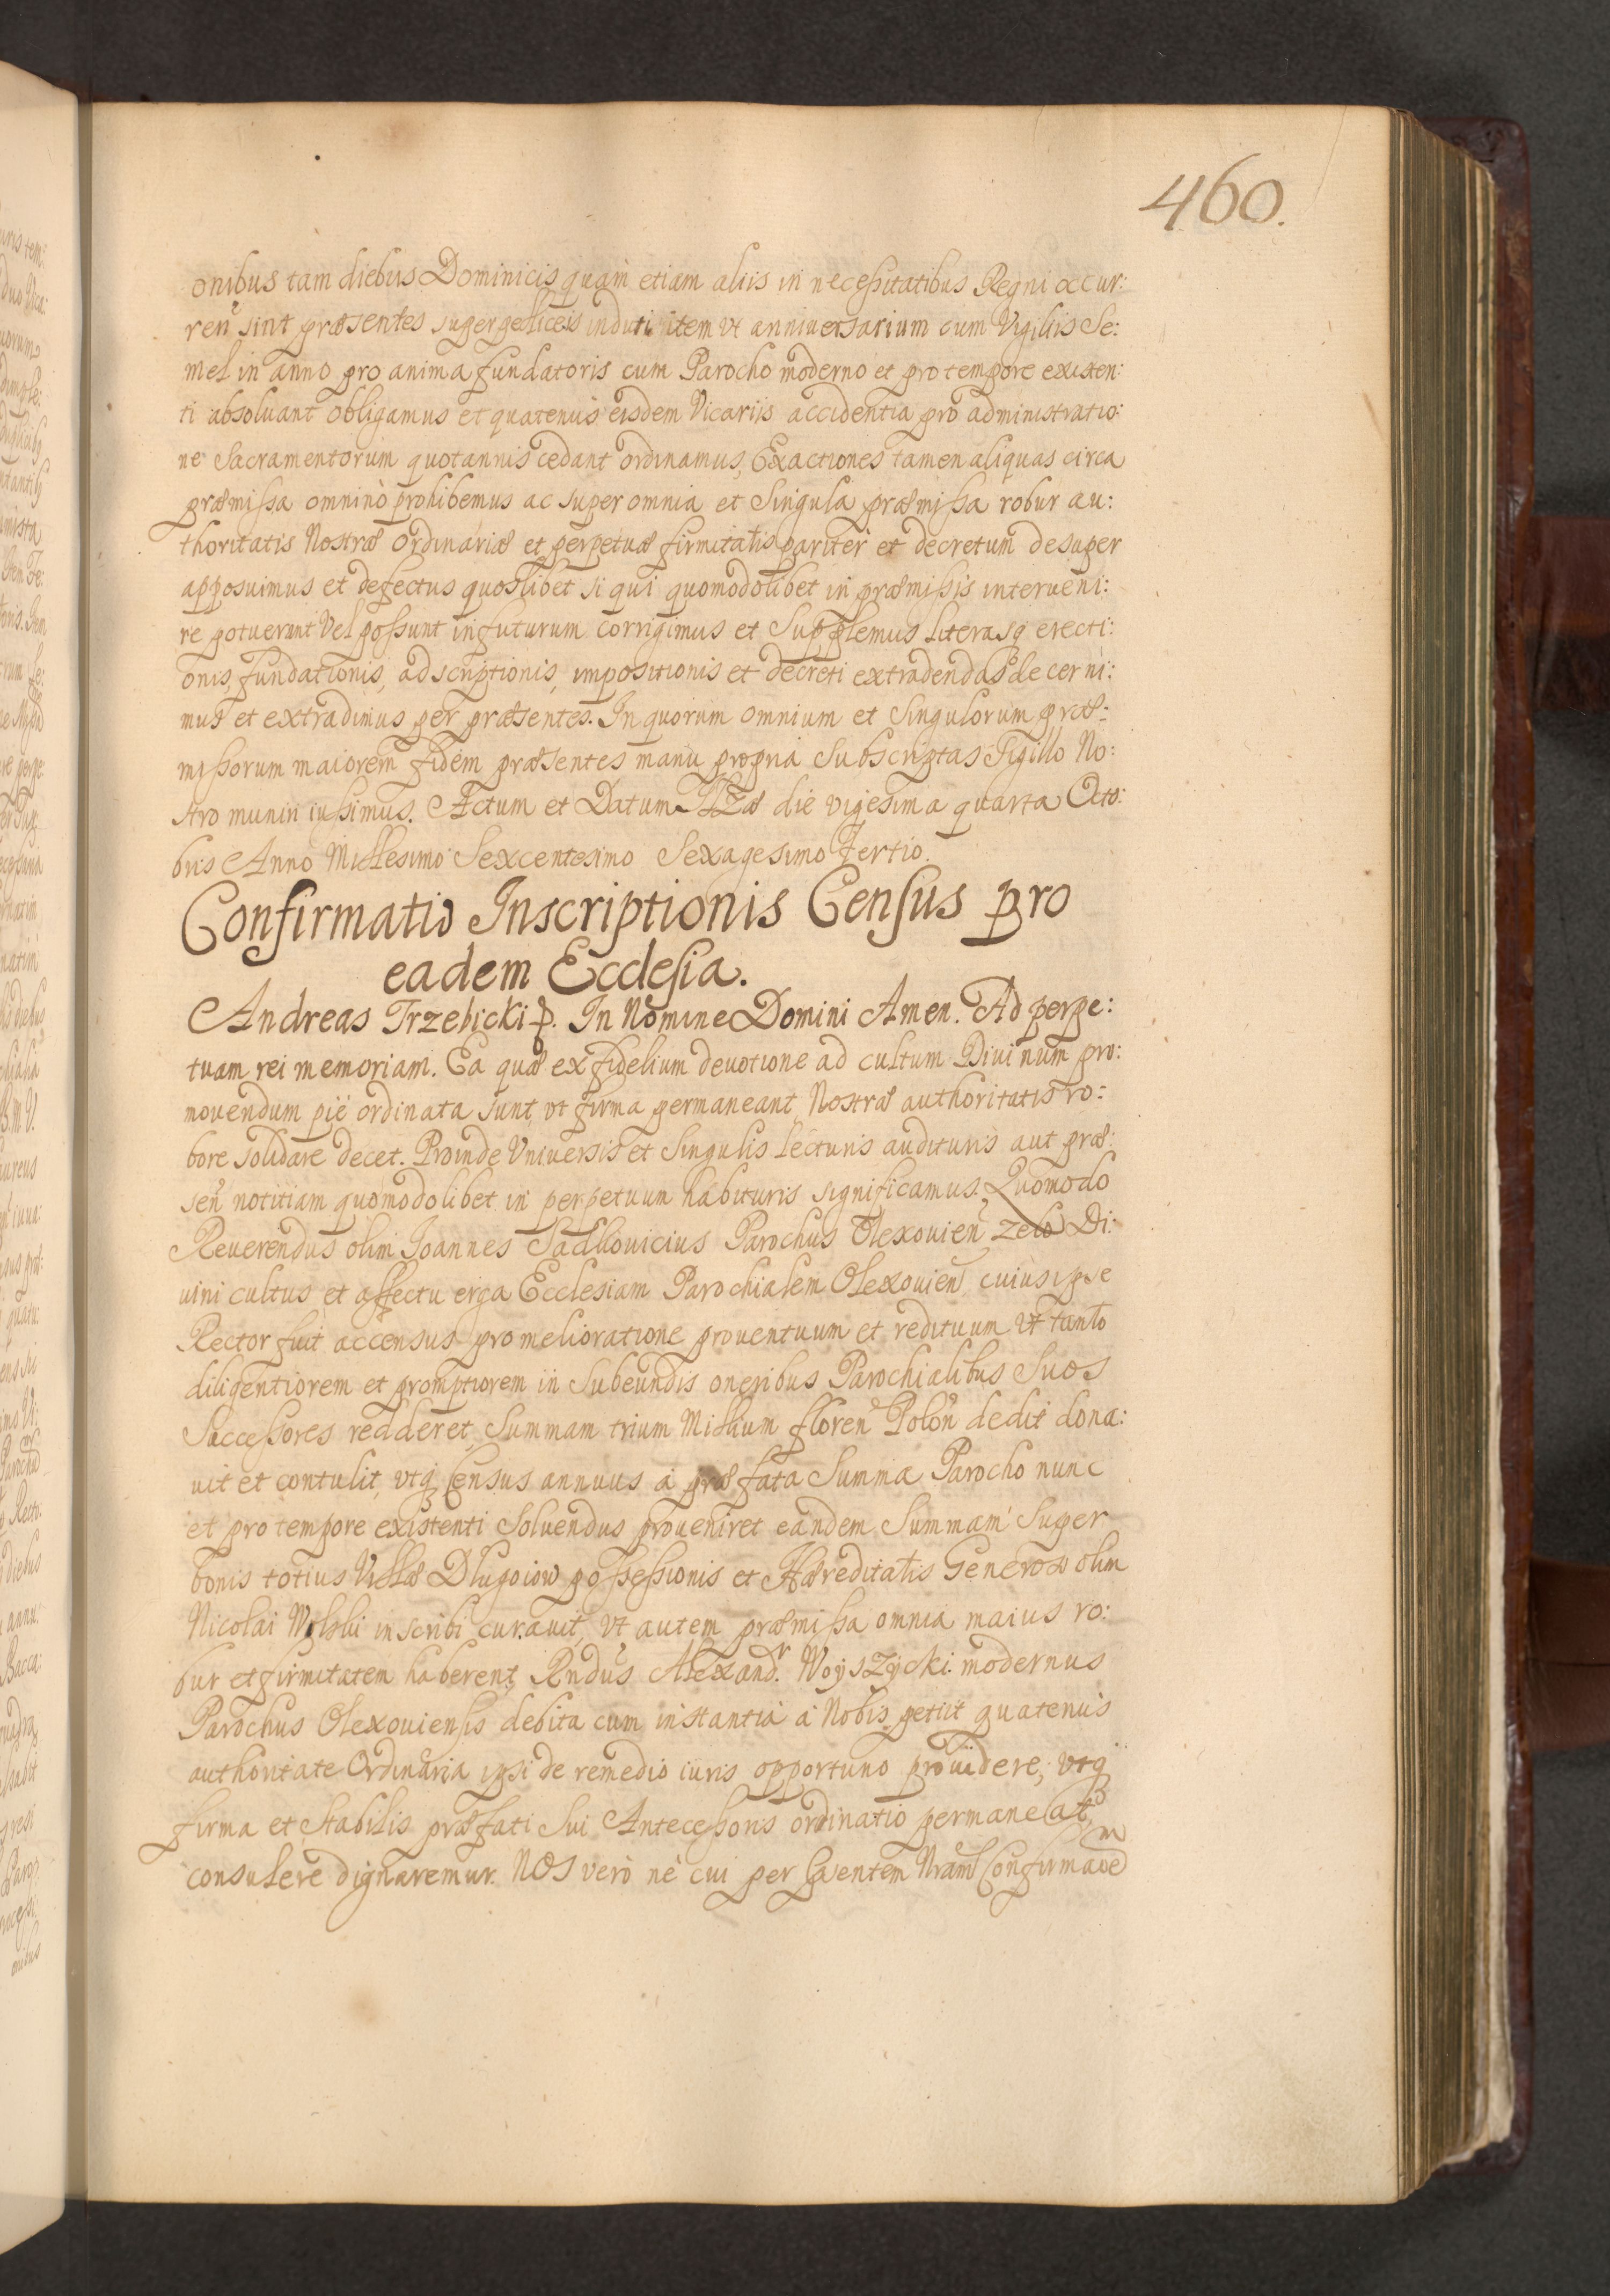 460.
onibus tam diebus Dominicis quam etiam aliis in necessitatibus Regni occur:
ren sint præsentes superpelliceis induti item vt anniuersarium cum Vigiliis Se:
mel in anno pro anima fundatoris cum Parocho moderno et pro tempore existen:
ti absoluant obligamus et quatenus eisdem Vicariis accidentia pro administratio:
ne Sacramentorum quotannis cedant ordinamus, Exactiones tamen aliquas circa
præmissa omninò prohibemus ac super omnia et Singula præmissa robur au:
thoritatis Nostræ Ordinariæ et perpetuæ firmitatis pariter et decretum desuper
apposuimus et defectus quoslibet si qui quomodolibet in præmissis interueni:
re potuerunt Vel possunt in futurum corrigimus et Supplemus literasq erecti:
onis, fundationis, adscriptionis, impositionis et decreti extradendas decerni:
mus et extradimus per præsentes. In quorum omnium et Singulorum præ:
missorum maiorem fidem præsentes manu propria Subscriptas Sigillo No:
stro muniri iussimus. Actum et Datum Ilzæ die vigesima quarta Octo:
bris Anno Millesimo Sexcentesimo Sexagesimo Tertio.
Confirmatio Inscriptionis Census pro
eadem Ecclesia.
Andreas Trzebicki p. In Nomine Domini Amen. Ad perpe:
tuam rei memoriam. Ea quæ ex fidelium deuotione ad cultum Diuinum pro:
mouendum piè ordinata sunt, vt firma permaneant, Nostræ authoritatis ro:
bore solidare decet. Proinde Vniuersis et Singulis lecturis audituris aut præ:
sen notitiam quomodolibet in perpetuum habituris significamus. Quomodo
Reuerendus olim Joannes Sadkouicius Parochus Olexouien zelo Di:
uini cultus et affectu erga Ecclesiam Parochialem Olexouien cuius ipse
Rector fuit accensus pro melioratione prouentuum et redituum vt tanto
diligentiorem et promptiorem in Subeundis oneribus Parochialibus Suos
Successores redderet, Summam trium Millium floren Polon dedit dona:
uit et contulit, vtq Census annuus à præfata Summa Parocho nunc
et pro tempore existenti Soluendus proueniret eandem Summam Super
bonis totius Villæ Dlugoiow possessionis et Hæreditatis Generosi olim
Nicolai Wolski inscribi curauit, vt autem præmissa omnia maius ro:
bur et firmitatem haberent, Rndus Alexandr. Woyszycki modernus
Parochus Olexouiensis debita cum instantia à Nobis petiit quatenus
authoritate Ordinaria ipsi de remedio iuris opportuno prouidere, vtq
firma et stabilis præfati Sui Antecessoris ordinatio permaneat,
consulere dignaremur. Nos verò nè cui per Præsentem Nram Confirmaoem